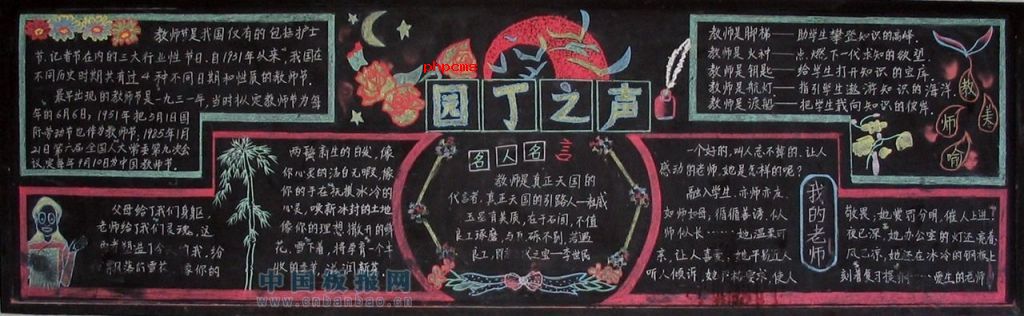 教师节是我国仅有的包括护士
节、记者节在内的三大行业性节日。自1931年以来，我国在
不同历史时期共有过4种不同日期和性质的教师节。
最早出现的教师节是一九三一年，当时拟定教师节为每
年的6月6日；1951年把5月1日国
际劳动节也作为教师节，1985年1月
21日第六届全国人大常委第九次会
议定每年9月10日为中国教师节。
父母给了我们身躯，
老师给了我们灵魂，这
像你的
两鬓新生的白发，像
你心灵的洁白无暇，像
你的手在抚摸冰冷的
心灵，唤新冰封的土地
像你的理想撒开的鲜
花，雪下着，将孕育一个丰
phpcms
园丁之声
名人名言
教师是真正天国的
代言者，真正天国的引路人—权威
玉虽有美质，在于石间，不值
良工琢磨，与瓦砾不别，若遇
良工，李世民
教师是脚梯——助学生攀登知识的高峰。
教师是火种——点燃下一代求知的欲望
教师是钥匙——给学生打开知识的宝库。
教师是航灯——指引学生遨游知识的海洋
教师是渡船——把学生载向知识的彼岸。
教
师
一个好的，叫人忘不掉的、让人
感动的老师，她是怎样的呢？
融入学生，亦师亦友，
如师如母，循循善诱，似
师似长……，她温柔可
亲，让人喜爱，她平易近人
听人倾诉，她严格要求，使人
我的老师
敬畏；她赏罚分明，催人上进！
夜已深，她办公室的灯还亮着，
风已凉，她还在冰冷的钢板上
刻着复习提纲……爱生的老师！
中国板报网
www.cnbanbao.cn